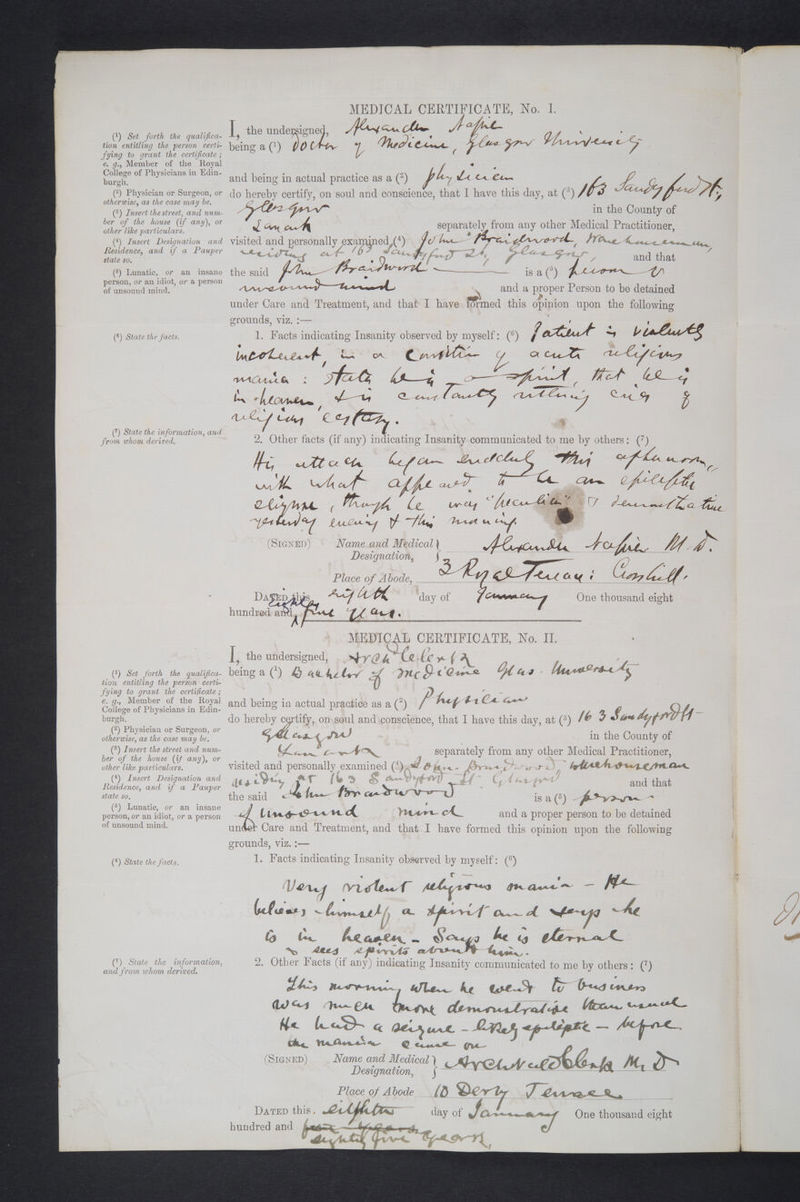 MEDICAL CERTIFICATE, No. I.
(¹) Set forth the qualifica-
tion entitling the person certi-
fying to grant the certificate;
e. g., Member of the Royal
College of Physicians in Edin-
burgh.
(²) Physician or Surgeon, or
otherwise, as the case may be.
(³) Insert the street, and num-
ber of the house (if any), or
other like particulars.
(⁴) Insert Designation and
Residence, and if a Pauper
state so.
(⁵) Lunatic, or an insane
person, or an idiot, or a person
of unsound mind.
(⁶) State the facts.
(⁷) State the information, and
from whom derived.
I, the undersigned, Alexander Napier
being a (¹) Doctor of Medicine, Glasgow University
and being in actual practice as a (²) physician
do hereby certify, on soul and conscience, that I have this day, at (³) 163 Sandyford St,
Glasgow in the County of
Lanark separately from any other Medical Practitioner,
visited and personally examined (⁴) John Braidwood, Warehouseman,
residing at 163 Sandyford St, Glasgow, and that
the said John Braidwood is a (⁵) person of
unsound mind and a proper Person to be detained
under Care and Treatment, and that I have formed this opinion upon the following
grounds, viz. :—
1. Facts indicating Insanity observed by myself: (⁶) Patient is violently
incoherent, in a condition of acute religious
mania : states he is a spirit, that he is
in heaven, & is constantly uttering cries of
religious ecstasy.
2. Other facts (if any) indicating Insanity communicated to me by others: (⁷)
His attack began suddenly this afternoon,
with what appeared to be an epileptic
seizure, though he was "peculiar" & demonstrative
yesterday evening & this morning
(SIGNED) Name and Medical Designation, Alexander Napier M.D.
Place of Abode, 3 Royal Terrace: Crosshill.
DATED this eighth day of January One thousand eight
hundred and eighty five years.
MEDICAL CERTIFICATE, No. II.
(¹) Set forth the qualifica-
tion entitling the person certi-
fying to grant the certificate;
e. g., Member of the Royal
College of Physicians in Edin-
burgh.
(²) Physician or Surgeon, or
otherwise, as the case may be.
(³) Insert the street and num-
ber of the house (if any), or
other like particulars.
(⁴) Insert Designation and
Residence, and if a Pauper
state so.
(⁵) Lunatic, or an insane
person, or an idiot, or a person
of unsound mind.
(⁶) State the facts.
(⁷) State the information,
and from whom derived.
I, the undersigned,
being a (¹) Bachelor of Medicine Glas. University
and being in actual practice as a (²) Physician
do hereby certify, on soul and conscience, that I have this day, at (³) 163 Sandyford St
Glasgow in the County of
Lanark separately from any other Medical Practitioner,
visited and personally examined (⁴) John Braidwood, warehouseman
residing at 163 Sandyford St Glasgow and that
the said John Braidwood is a (⁵) person
of unsound mind and a proper person to be detained
under Care and Treatment, and that I have formed this opinion upon the following
grounds, viz. :—
1. Facts indicating Insanity observed by myself: (⁶)
Very violent religious mania - He
believes himself a spirit and says he
is in heaven - Says he is eternal
& sees spirits about him.
2. Other Facts (if any) indicating Insanity communicated to me by others: (⁷)
This morning when he went to business
was much more demonstrative than usual
He had a seizure - likely epileptic - before
the mania came on
(SIGNED) Name and Medical Designation, M. D
Place of Abode 10 Derby Terrace
DATED this eighth day of January One thousand eight
hundred and eighty five years,